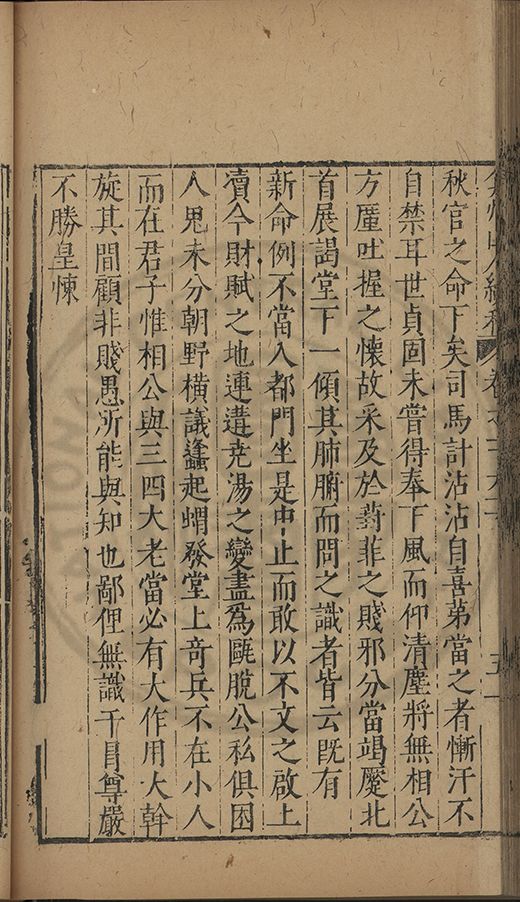 弇州山人續稿 卷之二百
秋官之命下矣司馬計沾沾自喜苐當之者慚汗不
自禁耳世貞固未嘗得奉下風而仰清塵將無相公
方厪吐握之懷故采及於葑菲之賤邪分當竭蹷北
首展謁堂下一傾其肺腑而問之識者皆云旣有
新命例不當入都門坐是中止而敢以不文之啟上
瀆今財賦之地連遘尭湯之變盡爲甌脫公私俱困
人鬼未分朝野橫議蠭起蝟發堂上竒兵不在小人
而在君子惟相公與三四大老當必有大作用大幹
旋其間顧非賤愚所能與知也鄙俚無識干冒尊嚴
不勝皇悚